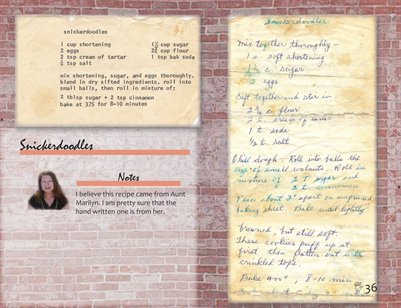 snickerdoodles
1 cup shortening 1½ cup sugar
2 eggs 2¾ cup flour
2 tsp cream of tartar 1 tsp bak soda
¼ tsp salt
mix shortening, sugar, and eggs thoroughly.
blend in dry sifted ingredients. roll into
small balls, then roll in mixture of:
2 tblsp sugar + 2 tsp cinnamon
bake at 375 for 8-10 minutes
Snickerdoodles
Notes
I believe this recipe came from Aunt
Marilyn. I am pretty sure that the
hand written one is from her.
Snickerdoodles
Mix together thoroughly -
1 c. soft shortening
1½ c. sugar
2 eggs
Sift together and stir in
2¾ c. flour
2 t. cream of tartar
1 t. soda
salt
Chill dough. Roll into balls the
size of small walnuts. Roll in
mixture of 2 T. sugar and
2 t. cinnamon
Place about 2" apart on ungreased
baking sheet. Bake until lightly
browned, but still soft.
These cookies puff up at
first then flatten out with
crinkled tops.
Bake 400°, 8-10 min
36